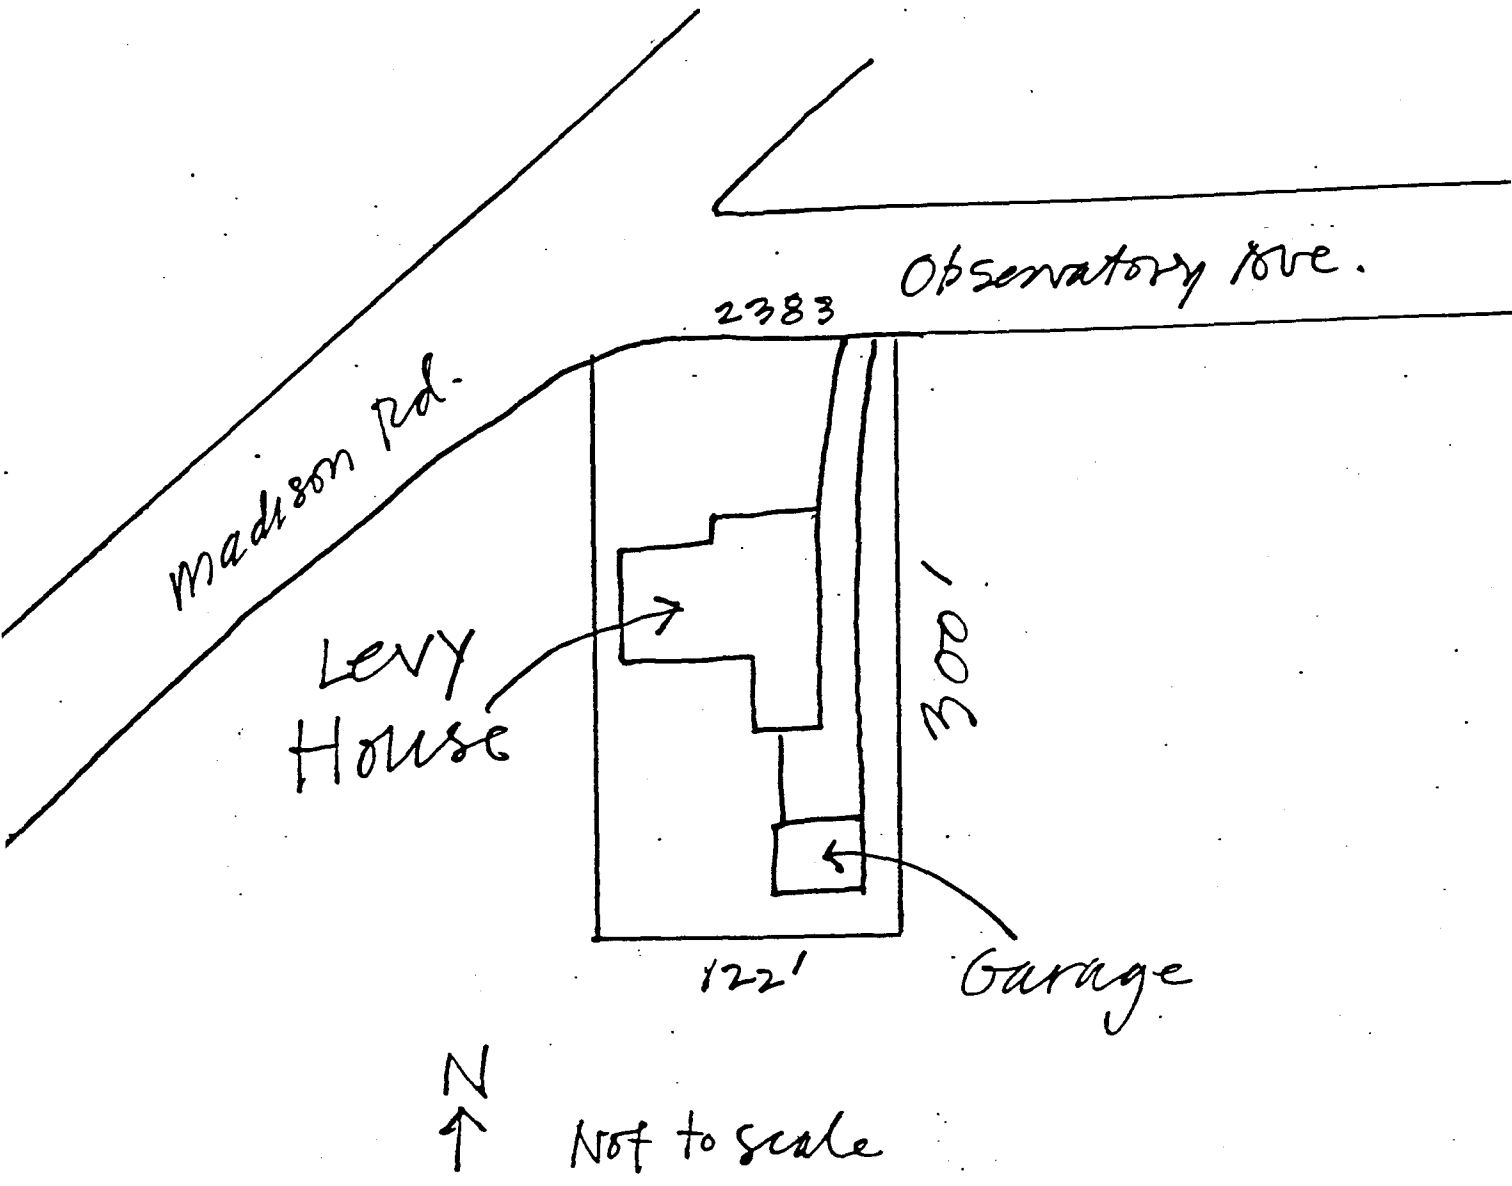 Observatory Ave.
2383
Madison Rd.
Levy
House
300'
122'
Garage
N
Not to scale